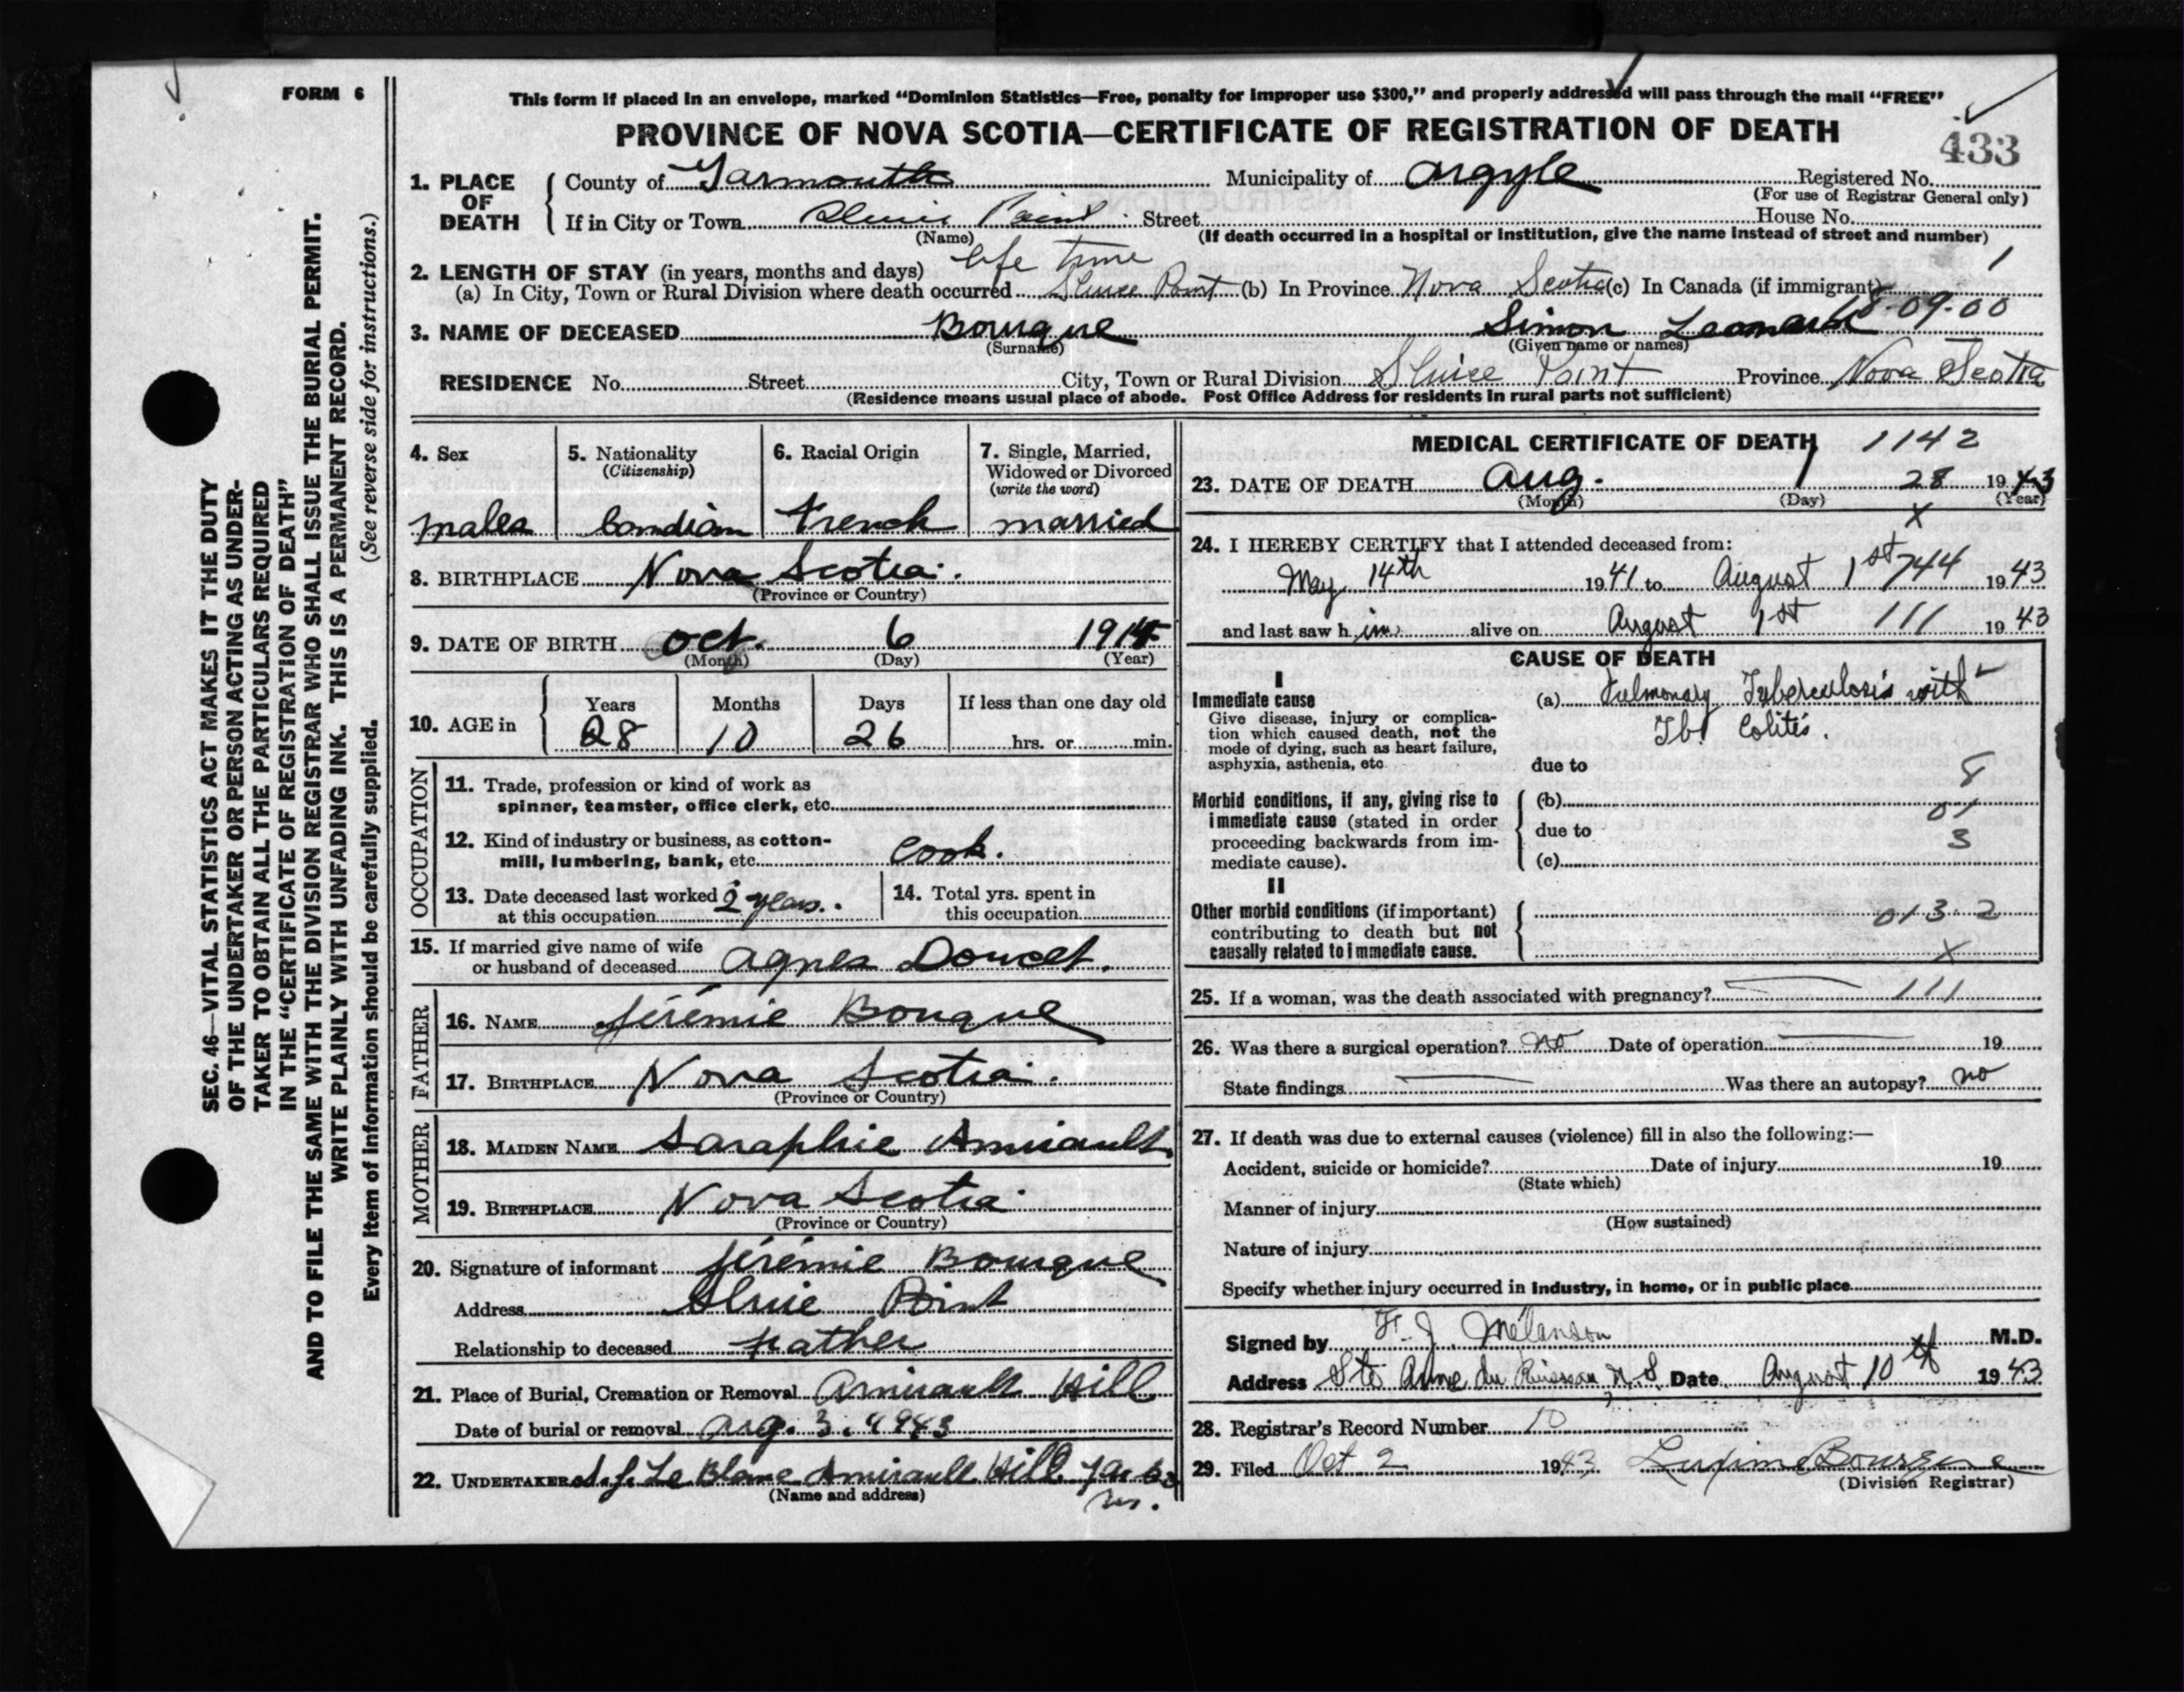 FORM 6
This form if placed in an envelope, marked “Dominion Statistics—Free, penalty for improper use $300,” and properly addressed will pass through the mail “FREE”
PROVINCE OF NOVA SCOTIA—CERTIFICATE OF REGISTRATION OF DEATH
433
1. PLACE OF DEATH County of Yarmouth Municipality of Argyle Registered No.
(For use of Registrar General only)
If in City or Town Sluice Point Street House No.
(Name) (If death occurred in a hospital or institution, give the name instead of street and number)
2. LENGTH OF STAY (in years, months and days) life time 1
(a) In City, Town or Rural Division where death occurred Sluice Point (b) In Province Nova Scotia (c) In Canada (if immigrant)
3. NAME OF DECEASED Bourque Simon Leonard 18-09-00
(Surname) (Given name or names)
RESIDENCE No. Street City, Town or Rural Division Sluice Point Province Nova Scotia
(Residence means usual place of abode. Post Office Address for residents in rural parts not sufficient)
4. Sex 5. Nationality (Citizenship) 6. Racial Origin 7. Single, Married, Widowed or Divorced (write the word)
males Candian French married
8. BIRTHPLACE Nova Scotia.
(Province or Country)
9. DATE OF BIRTH Oct. 6 1914
(Month) (Day) (Year)
10. AGE in Years Months Days If less than one day old
28 10 26 hrs. or min.
OCCUPATION
11. Trade, profession or kind of work as
spinner, teamster, office clerk, etc.
12. Kind of industry or business, as cotton-
mill, lumbering, bank, etc. Cook.
13. Date deceased last worked at this occupation 2 years. 14. Total yrs. spent in this occupation
15. If married give name of wife
or husband of deceased Agnes Doucet.
FATHER
16. NAME Jérémie Bourque
17. BIRTHPLACE Nova Scotia.
(Province or Country)
MOTHER
18. MAIDEN NAME Saraphie Amirault
19. BIRTHPLACE Nova Scotia
(Province or Country)
20. Signature of informant Jérémie Bourque
Address Sluice Point
Relationship to deceased Father
21. Place of Burial, Cremation or Removal Amirault Hill
Date of burial or removal Aug. 3. 1943
22. UNDERTAKER Le Blanc Amirault Hill Yar Co
(Name and address) NS.
MEDICAL CERTIFICATE OF DEATH 1142
23. DATE OF DEATH Aug. 1 28 1943
(Month) (Day) (Year)
x
24. I HEREBY CERTIFY that I attended deceased from:
May 14th 1941 to August 1st 744 1943
and last saw him alive on August 1st 111 1943
CAUSE OF DEATH
I
Immediate cause
Give disease, injury or complica-
tion which caused death, not the
mode of dying, such as heart failure,
asphyxia, asthenia, etc
(a) Pulmonary Tuberculosis with
Tb. Colitis.
due to 8
Morbid conditions, if any, giving rise to
immediate cause (stated in order
proceeding backwards from im-
mediate cause).
(b) 01
due to 3
(c)
II
Other morbid conditions (if important)
contributing to death but not
causally related to immediate cause.
013.2
x
25. If a woman, was the death associated with pregnancy? — 111
26. Was there a surgical operation? no Date of operation — 19
State findings — Was there an autopsy? no
27. If death was due to external causes (violence) fill in also the following:—
Accident, suicide or homicide? Date of injury 19
(State which)
Manner of injury
(How sustained)
Nature of injury
Specify whether injury occurred in industry, in home, or in public place
Signed by F. J. Mélanson M.D.
Address Ste Anne du Ruisseau, N.S. Date August 10th 1943
28. Registrar's Record Number 10
29. Filed Oct 2 1943 Bourque
(Division Registrar)
SEC. 46—VITAL STATISTICS ACT MAKES IT THE DUTY
OF THE UNDERTAKER OR PERSON ACTING AS UNDER-
TAKER TO OBTAIN ALL THE PARTICULARS REQUIRED
IN THE “CERTIFICATE OF REGISTRATION OF DEATH”
AND TO FILE THE SAME WITH THE DIVISION REGISTRAR WHO SHALL ISSUE THE BURIAL PERMIT.
WRITE PLAINLY WITH UNFADING INK. THIS IS A PERMANENT RECORD.
Every item of information should be carefully supplied. (See reverse side for instructions.)